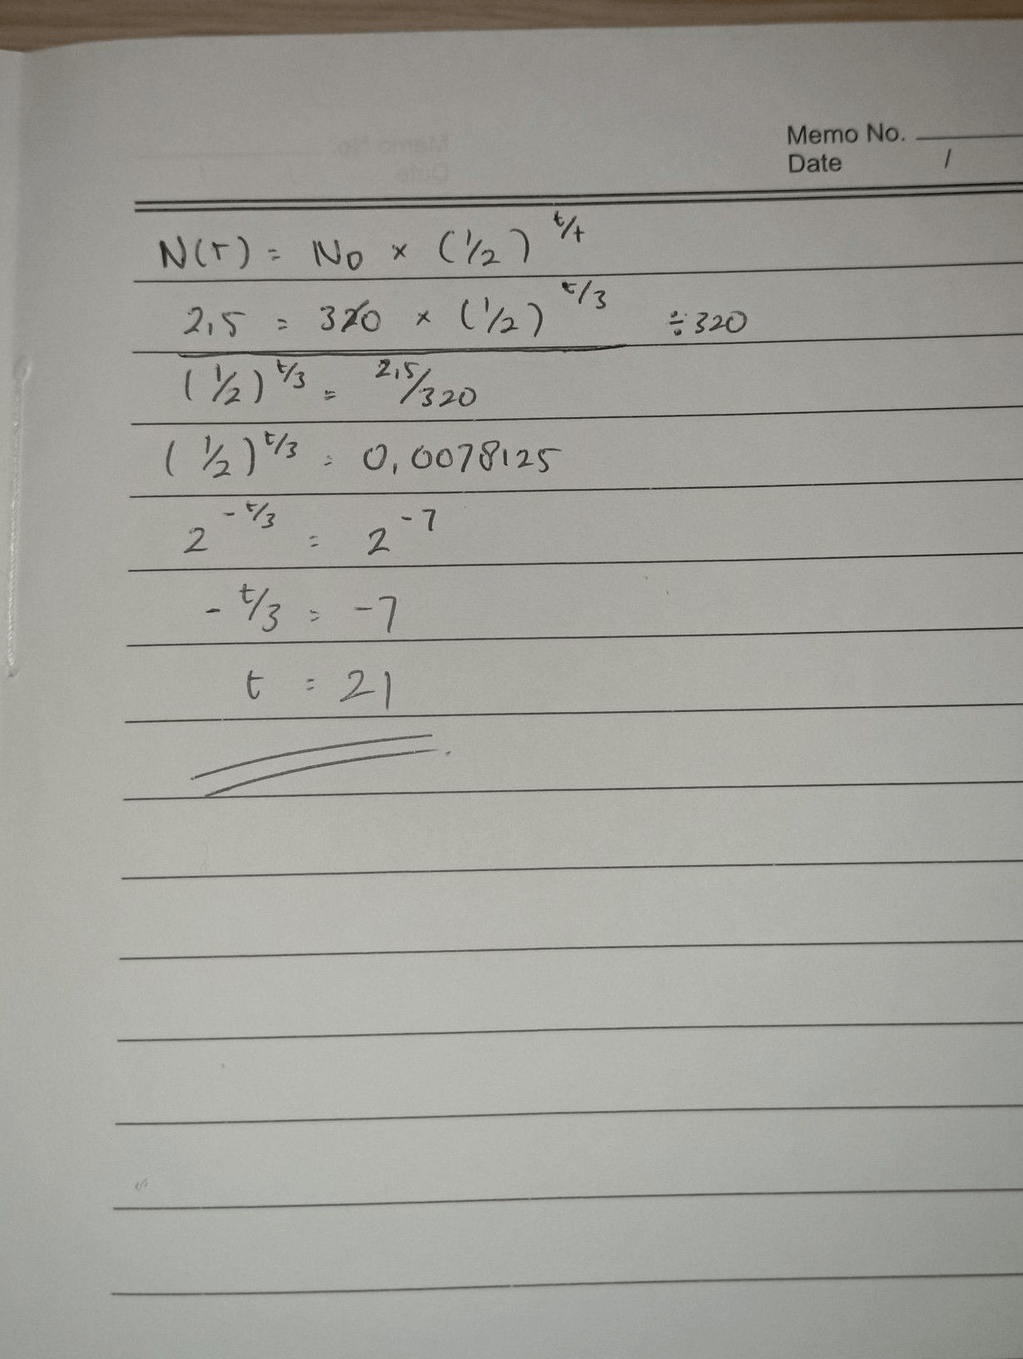 Memo No.
Date /
N(t) = N0 × (1/2)^t/t
2,5 = 320 × (1/2)^t/3 ÷320
(1/2)^t/3 = 2,5/320
(1/2)^t/3 = 0,0078125
2^-t/3 = 2^-7
-t/3 = -7
t = 21